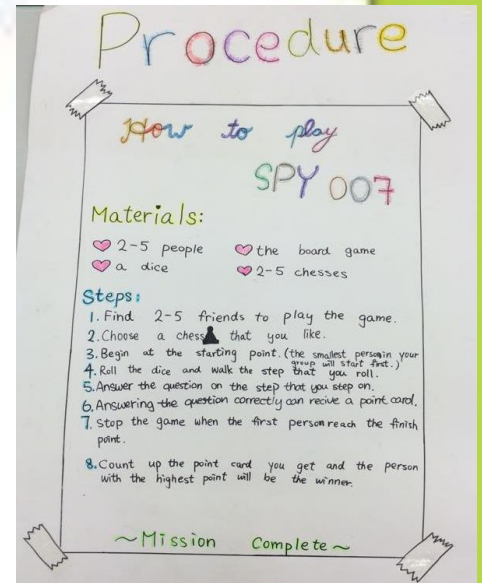 Procedure
How to play
SPY 007
Materials:
2-5 people the board game
a dice 2-5 chesses
Steps:
1. Find 2-5 friends to play the game.
2. Choose a chess that you like.
3. Begin at the starting point. (the smallest person in your
group will start first.)
4. Roll the dice and walk the step that you roll.
5. Answer the question on the step that you step on.
6. Answering the question correctly can recive a point card.
7. Stop the game when the first person reach the finish
point.
8. Count up the point card you get and the person
with the highest point will be the winner.
~Mission Complete~